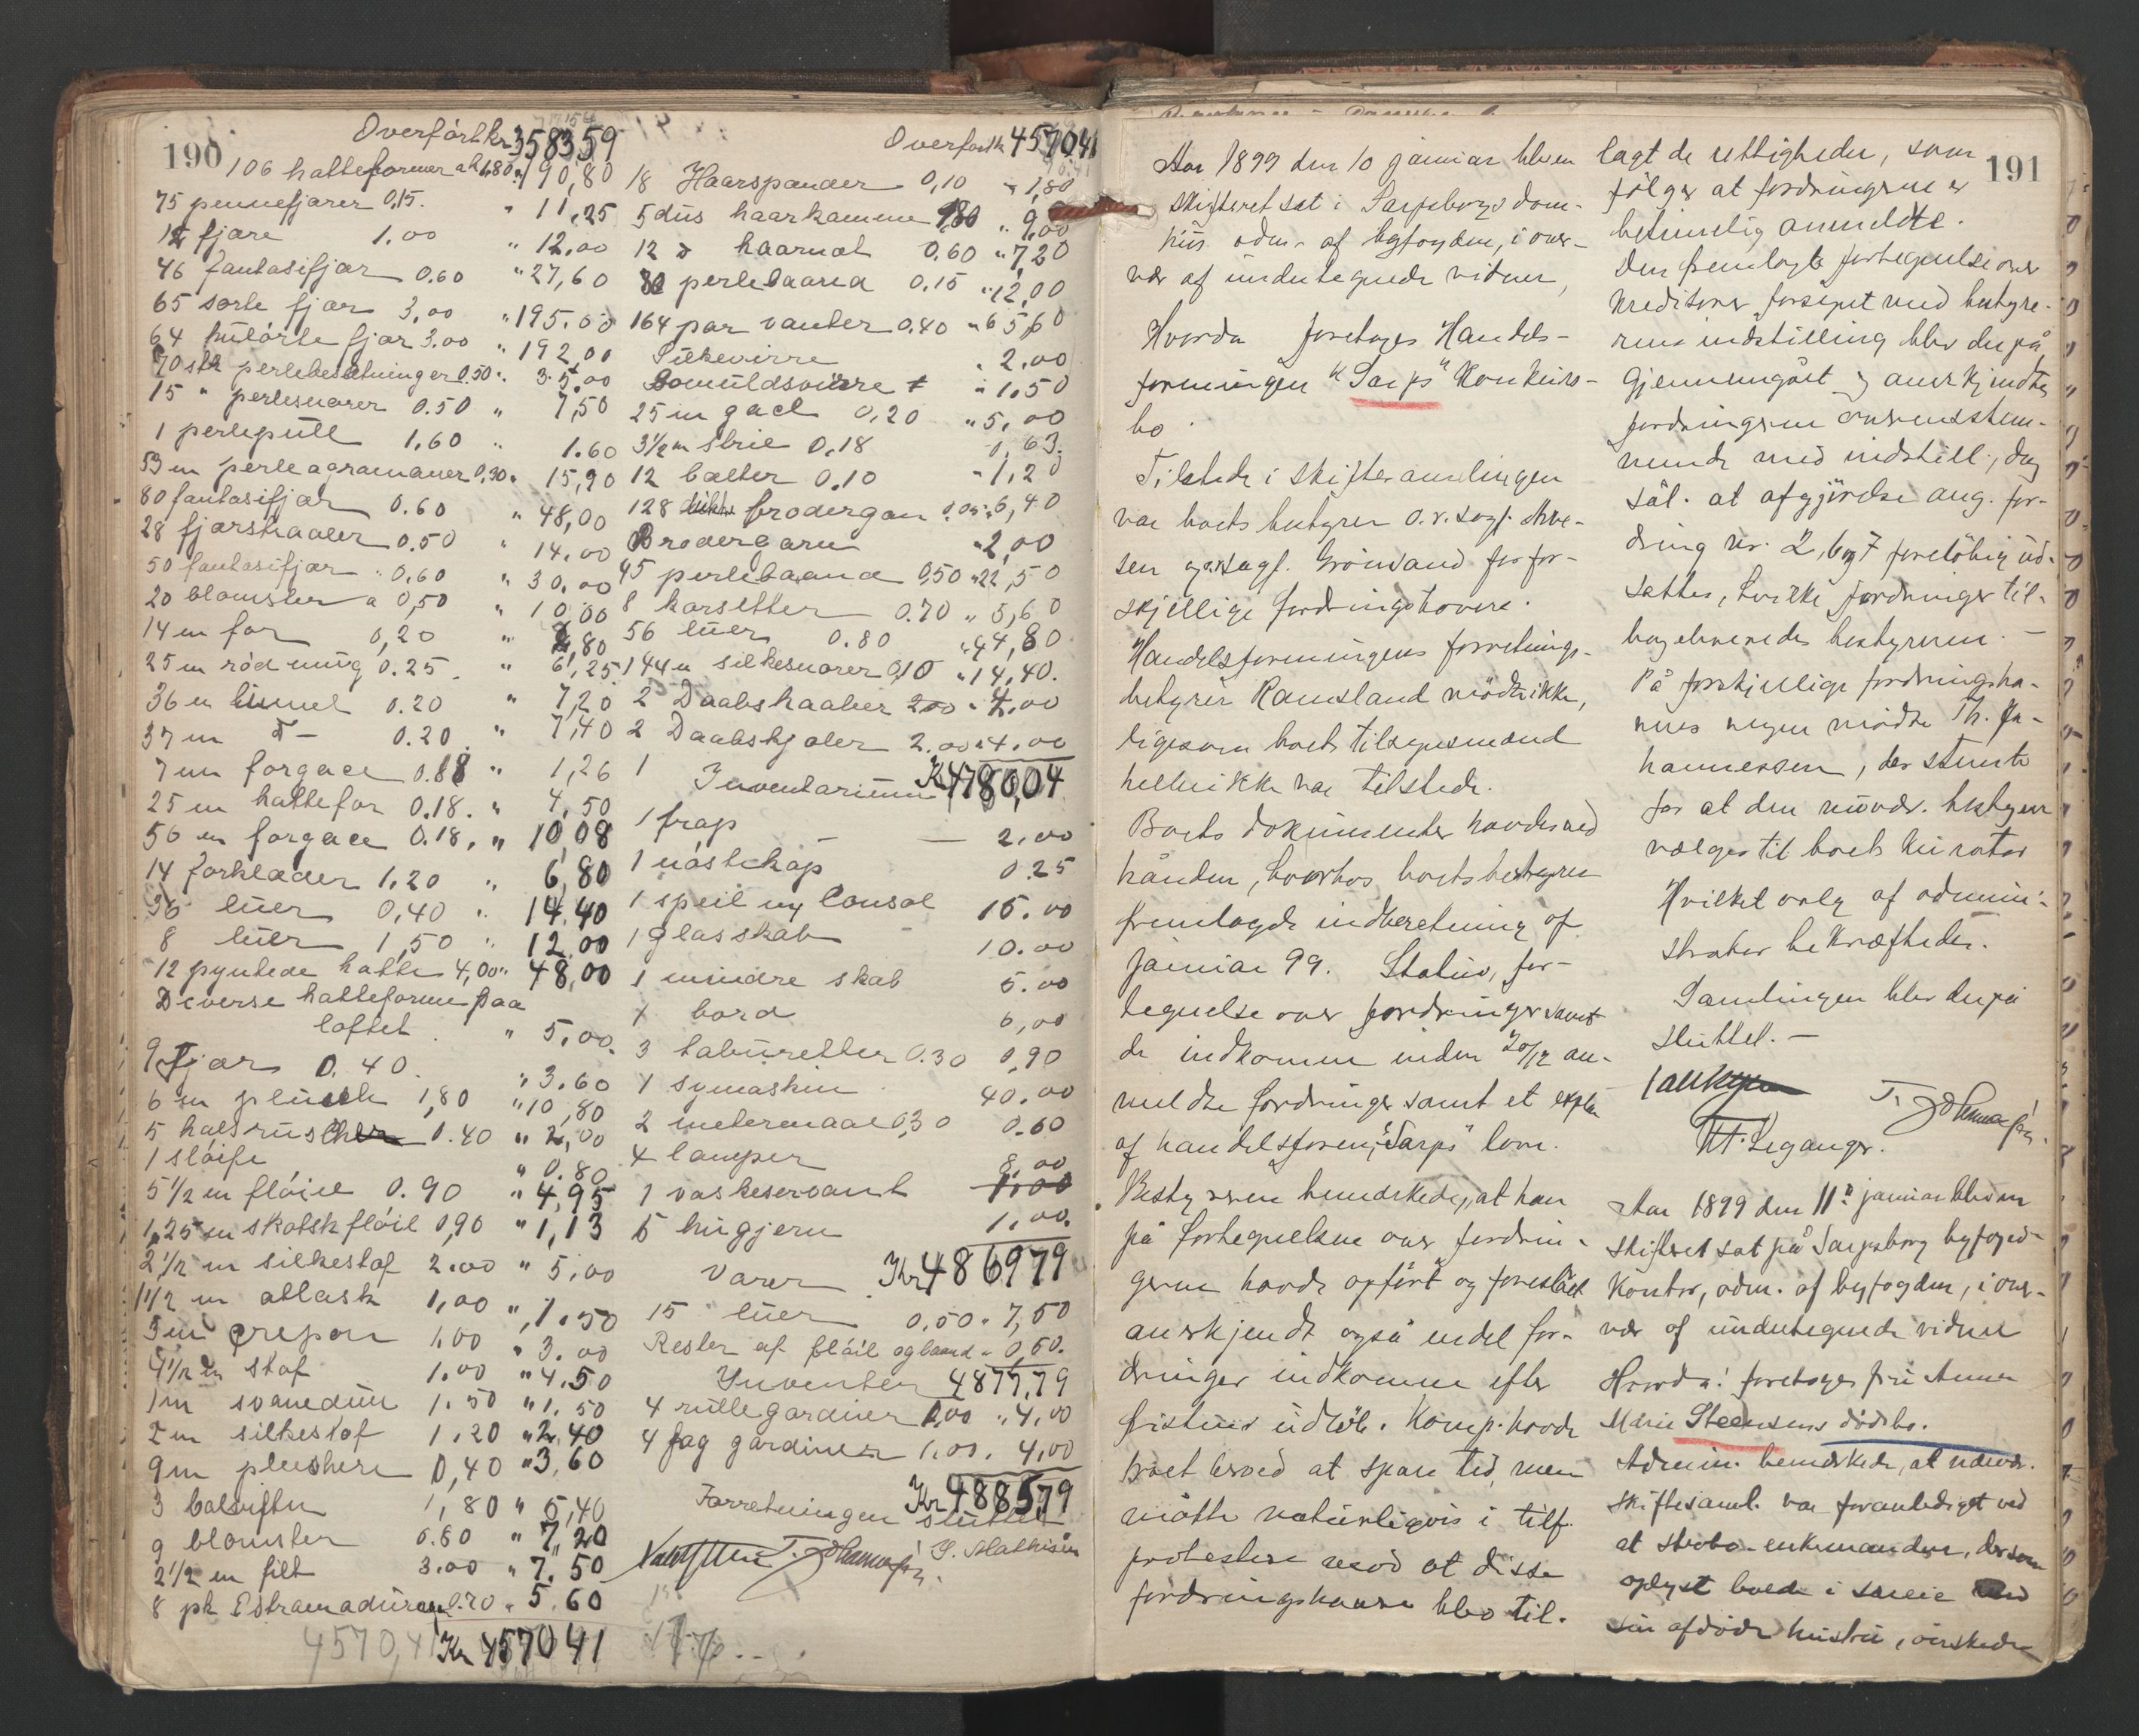 190
Overført kr 3583 59
106 hatteformer a kr 1.80 " 190,80
75 pennefjærer 0,15. " 11,25
12 fjære 1.00 " 12.00
46 fantasifjær 0.60 " 27,60
65 sorte fjær 3,00 " 195.00
64 kulørte fjær 3.00 " 192,00
70 stk perlebesætninger 0.50 " 35,00
15 " perlesnorer 0.50 " 7,50
1 perlepüll 1,60 " 1.60
53 m perleagramaner 0,30 " 15,90
80 fantasifjær 0.60 " 48,00
28 fjærstraaler 0.50 " 14.00
50 fantasifjær " 0,60 " 30.00
20 blomster a 0,50 " 10,00
14 m for 0,20 " 2,80
25 m rød 0.25. " 6,25
36 m 0.20 " 7,20
37 m 0.20 " 7,40
7 m forgace 0.18 " 1,26
25 m hattefor 0.18. " 4,50
56 m forgace 0.18, " 10,08
14 forklæder 1,20 " 6,80
36 lüer 0,40 " 14,40
8 lüer 1,50 " 12,00
12 pyntede hatte 4,00 " 48,00
Diverse hatteforme paa
loftet " 5,00.
9 Fjær 0.40. " 3.60
6 m plüsch 1,80 " 10,80
5 halsrüscher 0.40 " 2,00
1 sløife " 0.80
5 1/2 m fløiel 0.90 " 4,95
1,25 m skotsk fløiel 0,90 " 1,13
2 1/2 m silkestof 2.00 " 5,00
1 1/2 m atlask 1,00 " 1.50
3 m crepon 1.00 " 3.00
4 1/2 m stof 1.00 " 4.50
1 m svanedün 1.50 " 1.50
2 m silkestof 1.20 " 2,40
9 m 0,40 " 3,60
3 balvifter 1,80 " 5,40
9 blomster 0.80 " 7,20
2 1/2 m filt 3.00 " 7.50
8 pk Estramadüra 0.70 " 5.60
4570,41 Kr 4570 41
Overført kr 4570,41
18 Haarspænder 0,10 " 1,80
5 düs haarkamme 1,80 " 9,00
12 D haarnæt 0.60 " 7,20
80 perlebaand 0.15 " 12,00
164 par vanter 0.40 " 65,60
Silkevirre " 2.00
Bomüldsvirre " 1.50
25 m gacl 0,20 " 5,00
3 1/2 m strie 0,18 " 0,63.
12 bælter 0.10 " 1,20
128 brodergarn 0.05 " 6,40
Brodergarn " 2,00
45 perlebaand 0,50 " 22,50
8 korsetter 0.70 " 5,60
56 lüer 0.80 " 44,80
144 m silkesnorer 0,10 " 14,40.
2 Daabskaaber 2.00 " 4.00
2 Daabskjoler 2.00 " 4.00
Inventarium Kr 4780,04
1 trap — 2.00
1 0.25
1 speil m/ Consol 15.00
1 glasskab 10.00
1 mindre skab 5.00
1 bord 6,00
3 taburetter 0.30 0,90
1 symaskin 40.00
2 metermaal 0,30 0.60
4 lamper 8,00
1 vaskeservant 1.00
5 1.00.
Varer Kr 4869 79
15 lüer 0.50 " 7,50
Rester af fløiel og baand " 0,50.
Inventar 4877,79
4 rüllegardiner 1,00 " 4,00
4 fag gardiner 1,00. 4,00
Kr 4885,79
Forretningen slüttet
S. Mathisen
191
Aar 1899 den 10 januar blev en
skifteret sat i Sarpsborgs dom-
hüs adm. af byfogden, i over-
vær af undertegnede vidner,
Hvorda foretages Handels-
foreningen "Sarps" Konkurs-
bo.
Tilstede i skiftesamlingen
var boets bestyrer o.r.sagf. Arve-
sen og o.r.sagf. Grønsand for for-
skjellige fordringshavere.
Handelsforeningens forretnings-
bestyrer Ramsland mødte ikke,
ligesom boets tilsynsmænd
heller ikke var tilstede.
Boets dokumenter havdes ved
hånden, hvorhos boets bestyrer
fremlagde indberetning af
januar 99. Status, for-
tegnelse over fordringer samt
de indkomne inden 20/12 an-
meldte fordringer samt et expl.
af handelsforen. "Sarps" love.
Bestyreren bemærkede, at han
på fortegnelsen over fordrin-
gerne havde opført og foreslået
anerkjendt også endel for-
dringer indkomne efter
fristens udløb. Komp. havde
troet herved at spare tid, men
måtte naturligvis i tilf.
protestere mod at disse
fordringshavere blev til-
lagt de rettigheder, som
følger at fordringerne er
betimelig anmeldte.
Den fremlagte fortegnelse over
kreditorer forsynet med bestyre-
rens indstilling blev derpå
gjennemgået og anerkjendtes
fordringerne overensstem-
mende med indstill., dog
sål. at afgjørelse ang. for-
dring nr. 2, 6 og 7 foreløbig ud-
sattes, hvilke fordringer til-
bageleveredes bestyreren. —
På forskjellige fordringsha-
veres vegne mødte Th. Jo-
hannessen, der stemte
for at den nuvær. bestyrer
vælges til boets kurator
Hvilket valg af admini-
strator bekræftedes.
Samlingen blev derpå
sluttet. —
T. Johannesen.
Leganger.
Aar 1899 den 11te januar blev en
skifteret sat på Sarpsborg byfoged-
kontor, adm. af byfogden, i over-
vær af undertegnede vidner
Hvorda: foretages frü Anna
Marie Steensens dødsbo.
Admin. bemærkede, at nærvær.
skiftesaml. var foranlediget ved
at stervbo-enkemanden, der som
oplyst havde i særeie med
sin afdøde hustru, ønskede